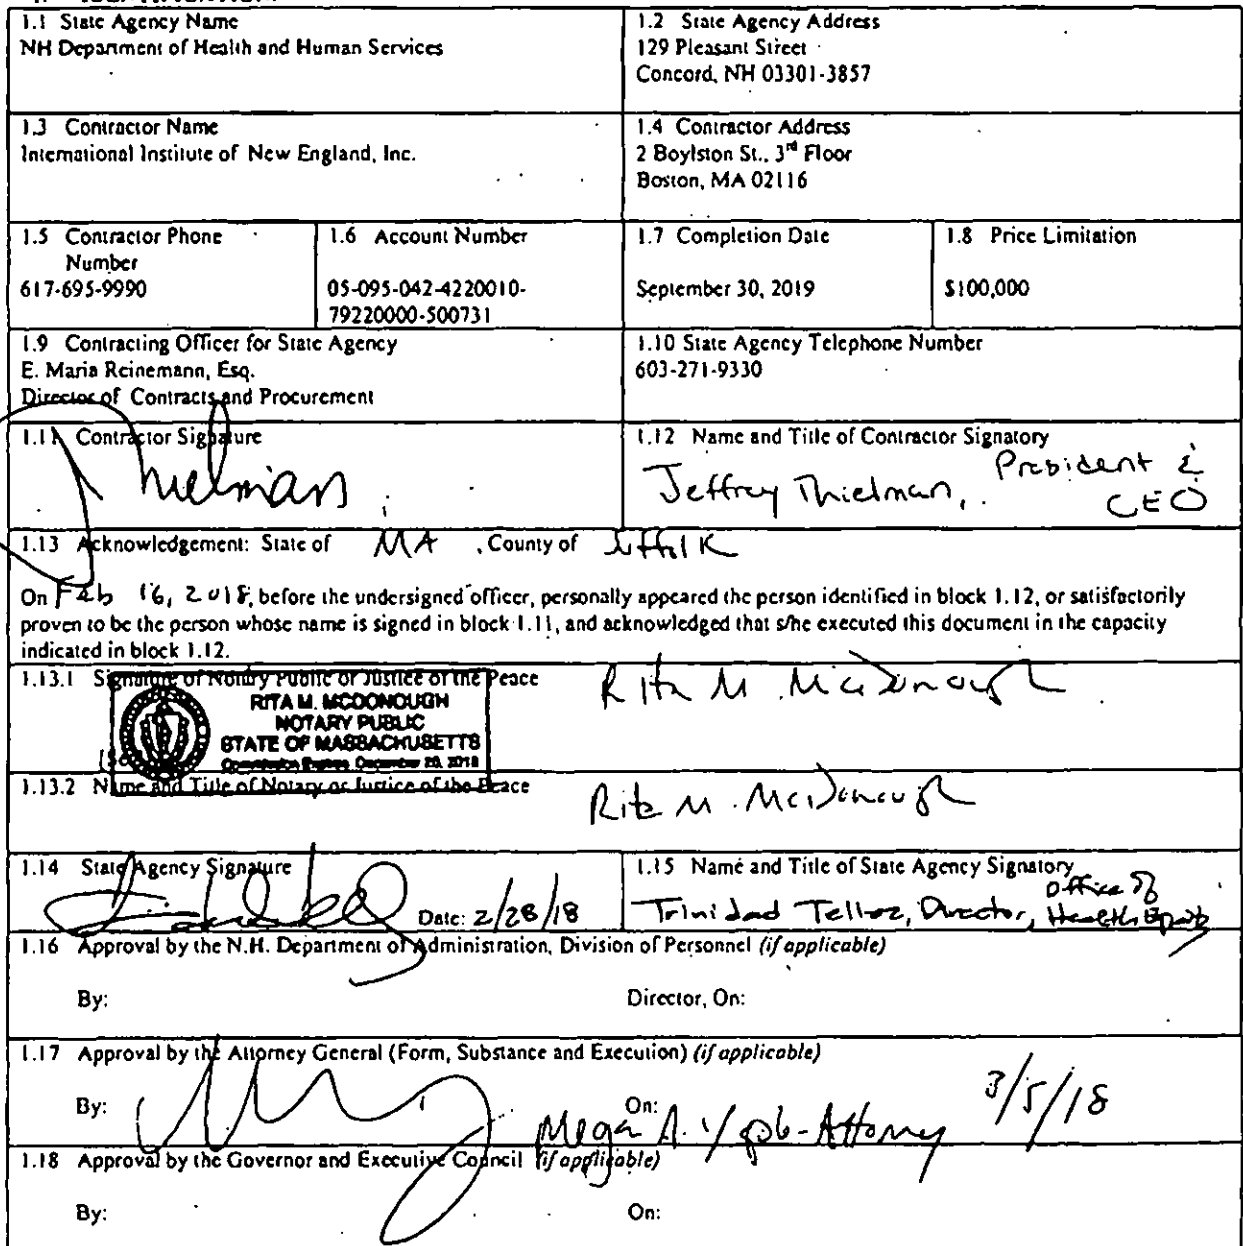 1.1 State Agency Name
NH Department of Health and Human Services
1.2 State Agency Address
129 Pleasant Street
Concord, NH 03301-3857
1.3 Contractor Name
International Institute of New England, Inc.
1.4 Contractor Address
2 Boylston St., 3rd Floor
Boston, MA 02116
1.5 Contractor Phone
Number
617-695-9990
1.6 Account Number
05-095-042-4220010-
79220000-500731
1.7 Completion Date
September 30, 2019
1.8 Price Limitation
$100,000
1.9 Contracting Officer for State Agency
E. Maria Reinemann, Esq.
Director of Contracts and Procurement
1.10 State Agency Telephone Number
603-271-9330
1.11 Contractor Signature
1.12 Name and Title of Contractor Signatory
Jeffrey Thielman, President &
CEO
1.13 Acknowledgement: State of MA , County of Suffolk
On Feb 16, 2018, before the undersigned officer, personally appeared the person identified in block 1.12, or satisfactorily
proven to be the person whose name is signed in block 1.11, and acknowledged that s/he executed this document in the capacity
indicated in block 1.12.
1.13.1 Signature of Notary Public or Justice of the Peace
Rita M. McDonough
RITA M. MCDONOUGH
NOTARY PUBLIC
STATE OF MASSACHUSETTS
Commission Expires December 20, 2018
1.13.2 Name and Title of Notary or Justice of the Peace
Rita M. McDonough
1.14 State Agency Signature
Date: 2/28/18
1.15 Name and Title of State Agency Signatory
Trinidad Tellez, Director, Office of
Health Equity
1.16 Approval by the N.H. Department of Administration, Division of Personnel (if applicable)
By: Director, On:
1.17 Approval by the Attorney General (Form, Substance and Execution) (if applicable)
By: On: 3/5/18
Megan A. - Attorney
1.18 Approval by the Governor and Executive Council (if applicable)
By: On: